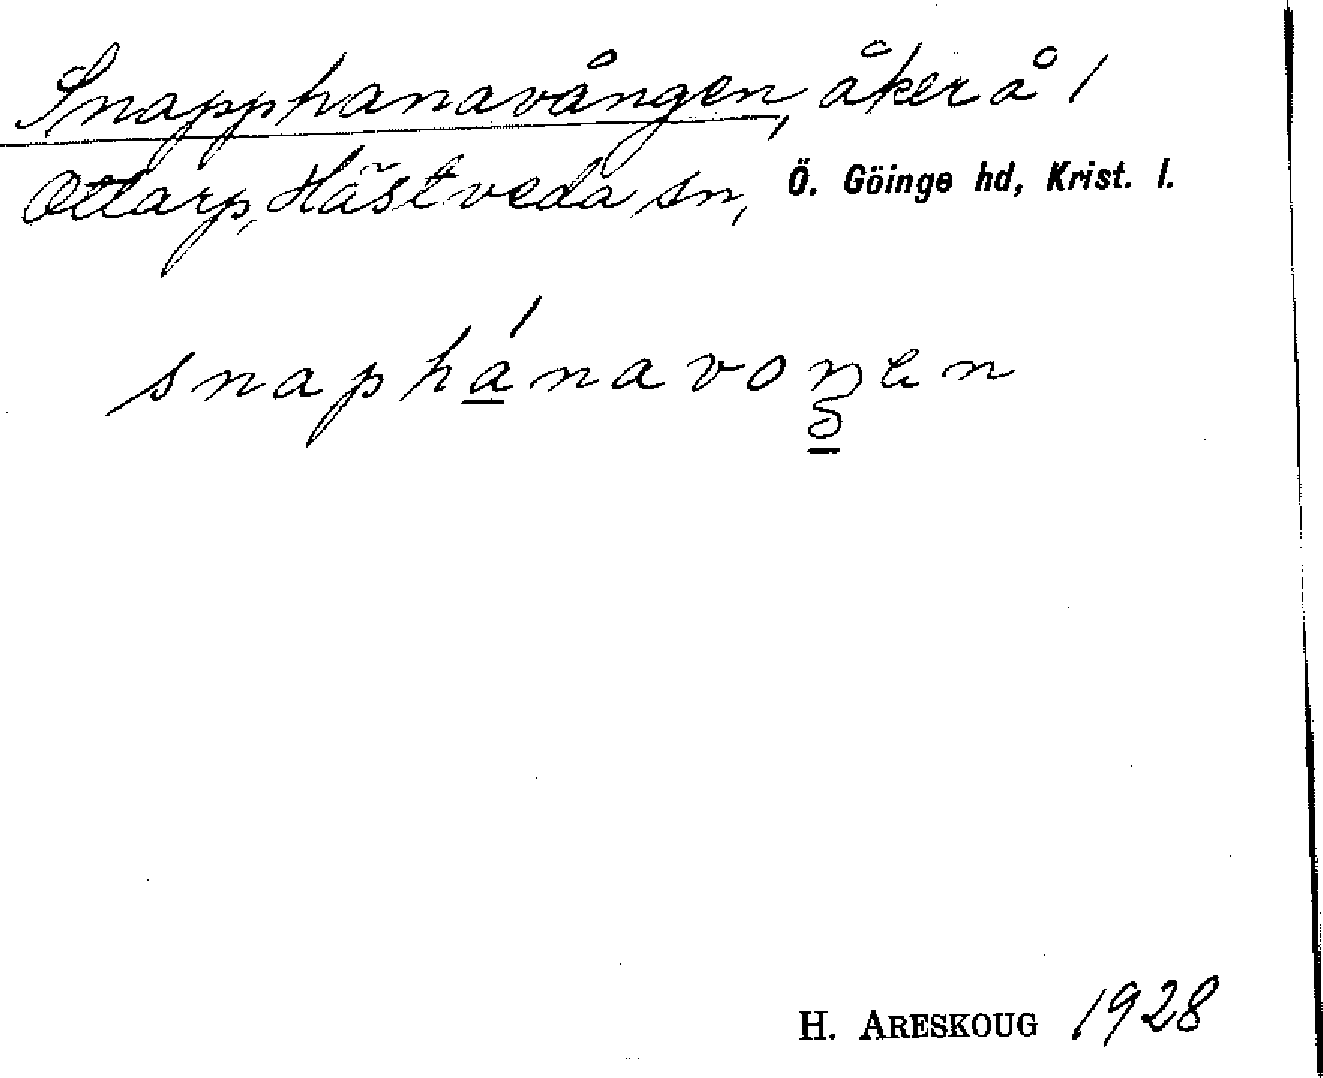 Snapphanavången, åker å 1
Ottarp, Hästveda sn, Ö. Göinge hd, Krist. l.
snaphánavoŋen
H. ARESKOUG 1928